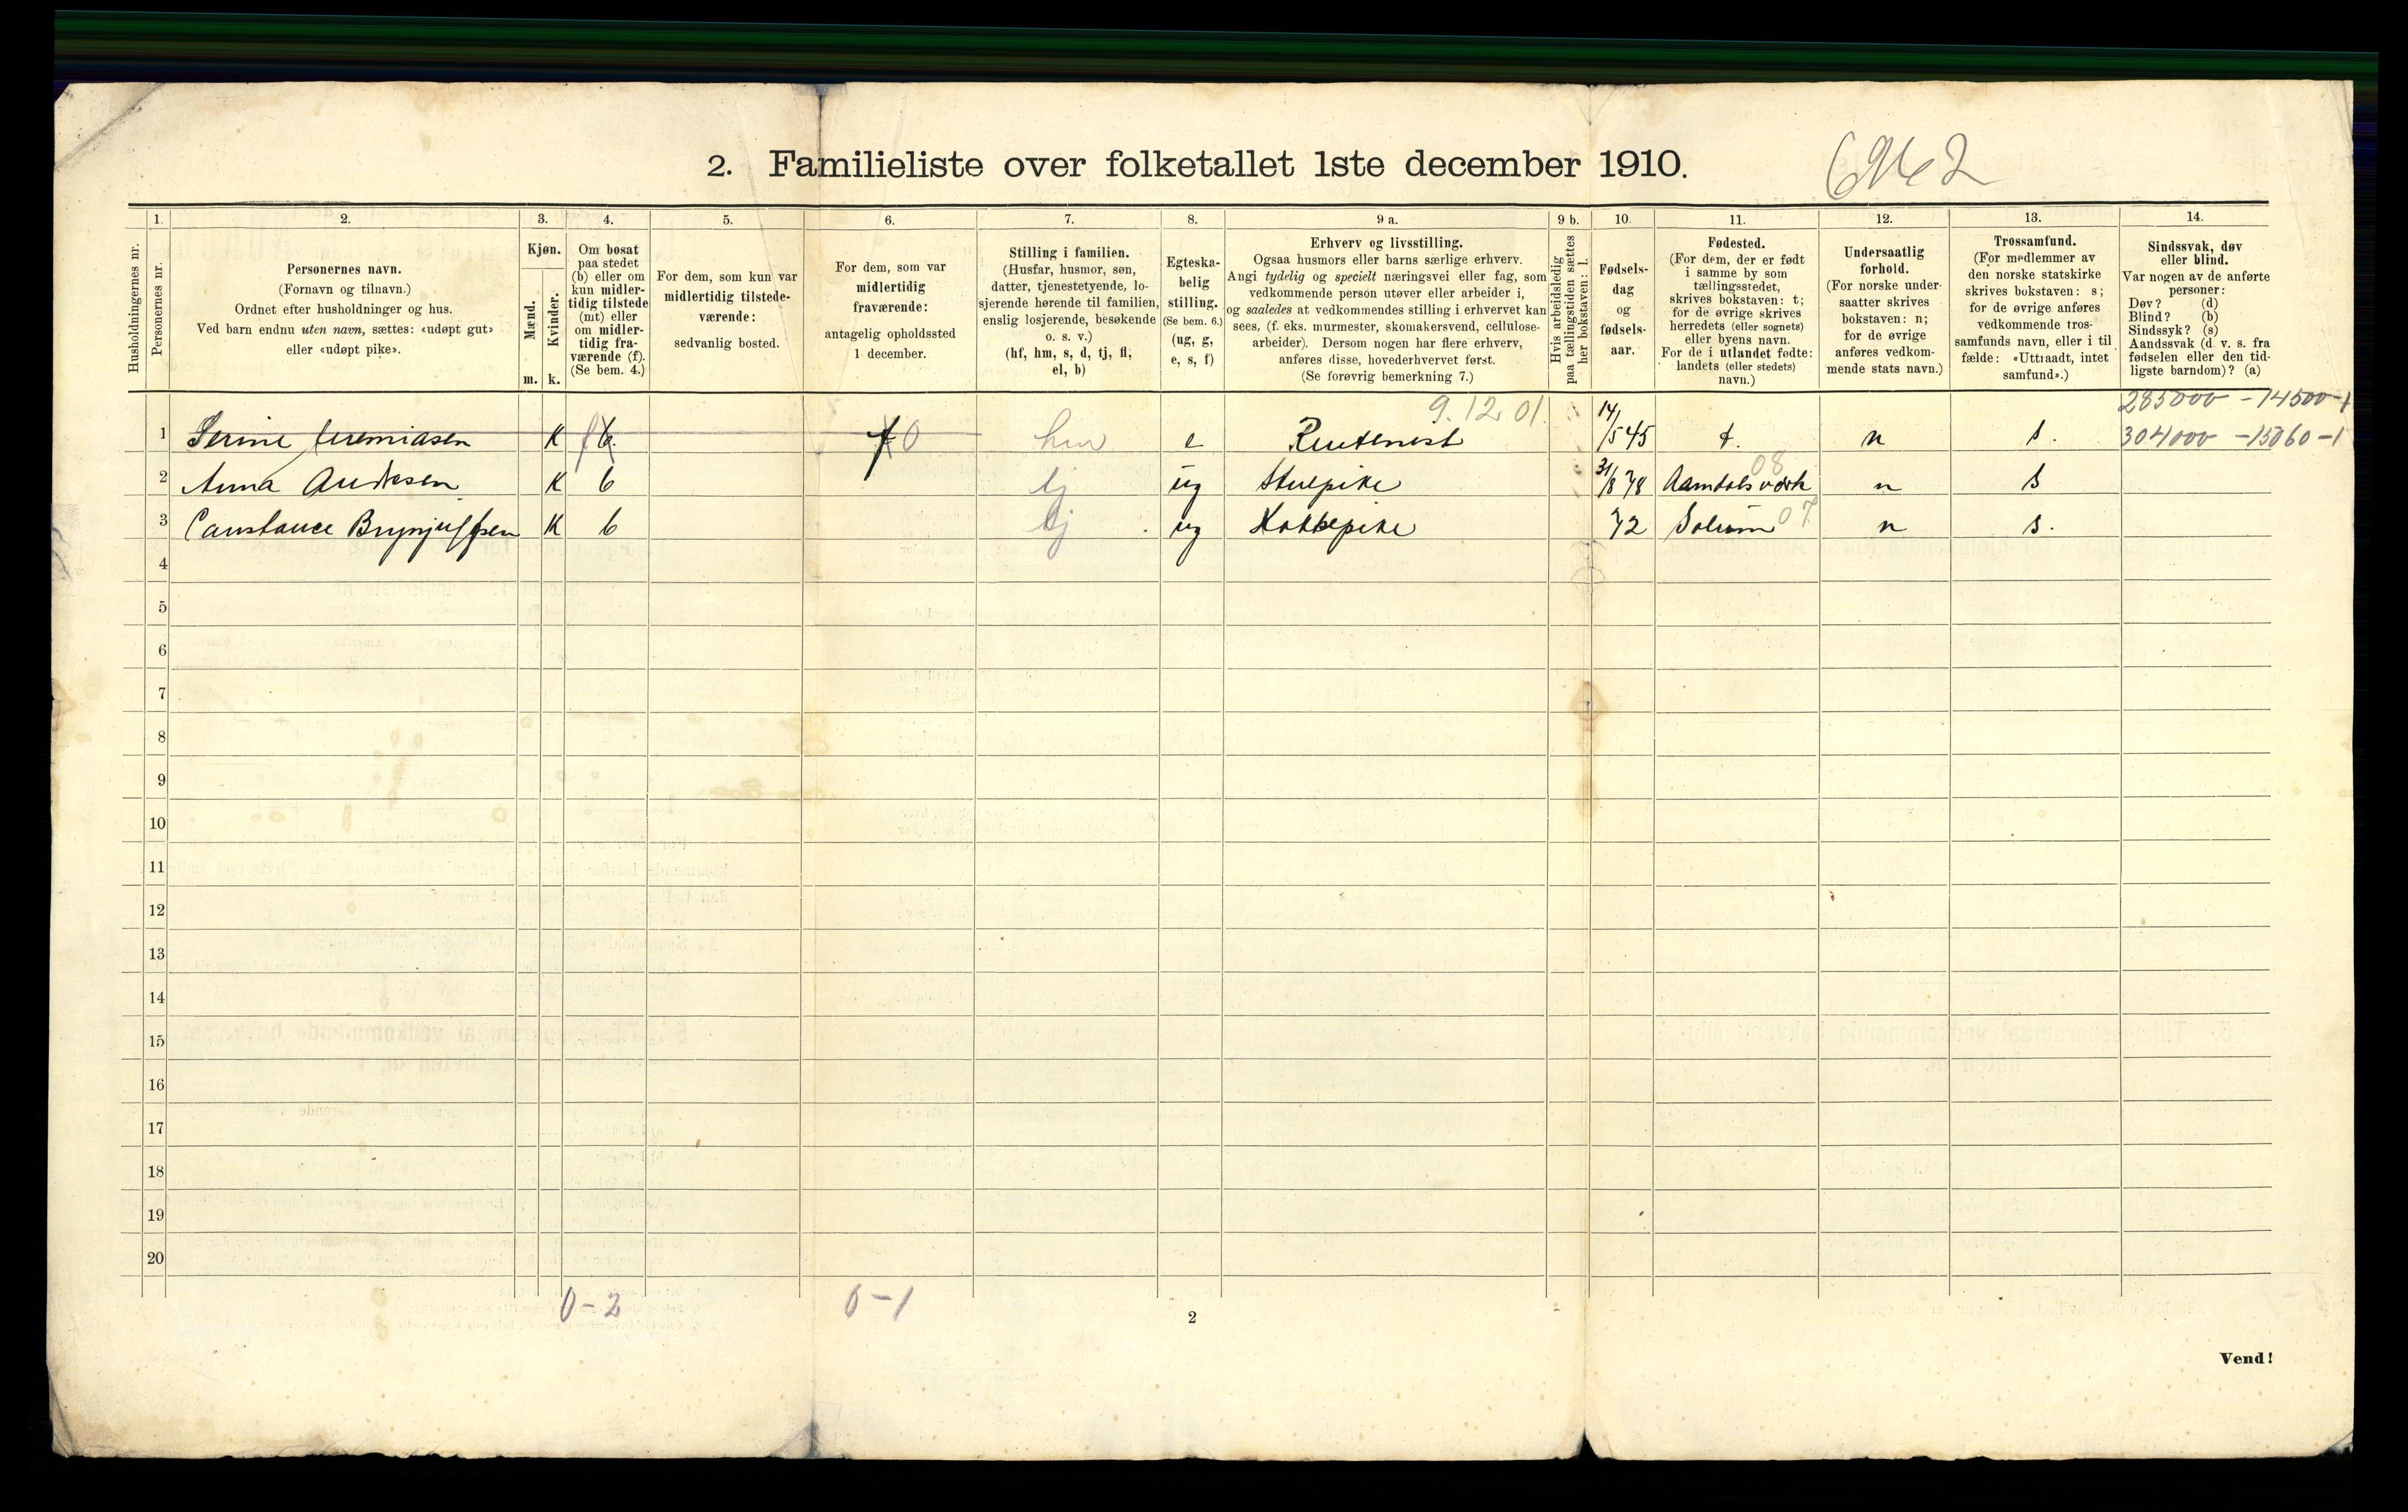 2. Familieliste over folketallet 1ste december 1910.
1. 2. 3. 4. 5. 6. 7. 8. 9 a. 9 b. 10. 11. 12. 13. 14.
Husholdningernes nr.
Personernes nr.
Personernes navn.
(Fornavn og tilnavn.)
Ordnet efter husholdninger og hus.
Ved barn endnu uten navn, sættes: «udøpt gut»
eller «udøpt pike».
Kjøn.
Mænd.
Kvinder.
m. k.
Om bosat
paa stedet
(b) eller om
kun midler-
tidig tilstede
(mt) eller
om midler-
tidig fra-
værende (f).
(Se bem. 4.)
For dem, som kun var
midlertidig tilstede-
værende:
sedvanlig bosted.
For dem, som var
midlertidig
fraværende:
antagelig opholdssted
1 december.
Stilling i familien.
(Husfar, husmor, søn,
datter, tjenestetyende, lo-
sjerende hørende til familien,
enslig losjerende, besøkende
o. s. v.)
(hf, hm, s, d, tj, fl,
el, b)
Egteska-
belig
stilling.
(Se bem. 6.)
(ug, g,
e, s, f)
Erhverv og livsstilling.
Ogsaa husmors eller barns særlige erhverv.
Angi tydelig og specielt næringsvei eller fag, som
vedkommende person utøver eller arbeider i,
og saaledes at vedkommendes stilling i erhvervet kan
sees, (f. eks. murmester, skomakersvend, cellulose-
arbeider). Dersom nogen har flere erhverv,
anføres disse, hovederhvervet først.
(Se forøvrig bemerkning 7.)
Hvis arbeidsledig
paa tællingstiden sættes
her bokstaven: l.
Fødsels-
dag
og
fødsels-
aar.
Fødested.
(For dem, der er født
i samme by som
tællingsstedet,
skrives bokstaven: t;
for de øvrige skrives
herredets (eller sognets)
eller byens navn.
For de i utlandet fødte:
landets (eller stedets)
navn.)
Undersaatlig
forhold.
(For norske under-
saatter skrives
bokstaven: n;
for de øvrige
anføres vedkom-
mende stats navn.)
Trossamfund.
(For medlemmer av
den norske statskirke
skrives bokstaven: s;
for de øvrige anføres
vedkommende tros-
samfunds navn, eller i til
fælde: «Uttraadt, intet
samfund».)
Sindssvak, døv
eller blind.
Var nogen av de anførte
personer:
Døv? (d)
Blind? (b)
Sindssyk? (s)
Aandssvak (d. v. s. fra
fødselen eller den tid-
ligste barndom)? (a)
9.12.01. 285000 - 14500-1
1 Serine Jeremiasen K b f 0 hm e Rentenest 14/5 45 t. n s. 304000 - 15060-1
2 Anna Andresen K b tj ug Stuepike 31/8 78 Aamdalsværk 08 n s
3 Constance Brynjulfsen K b tj ug Kokkepike 72 Solum 07 n s.
4
5
6
7
8
9
10
11
12
13
14
15
16
17
18
19
20
0-2 0-1
2
Vend!